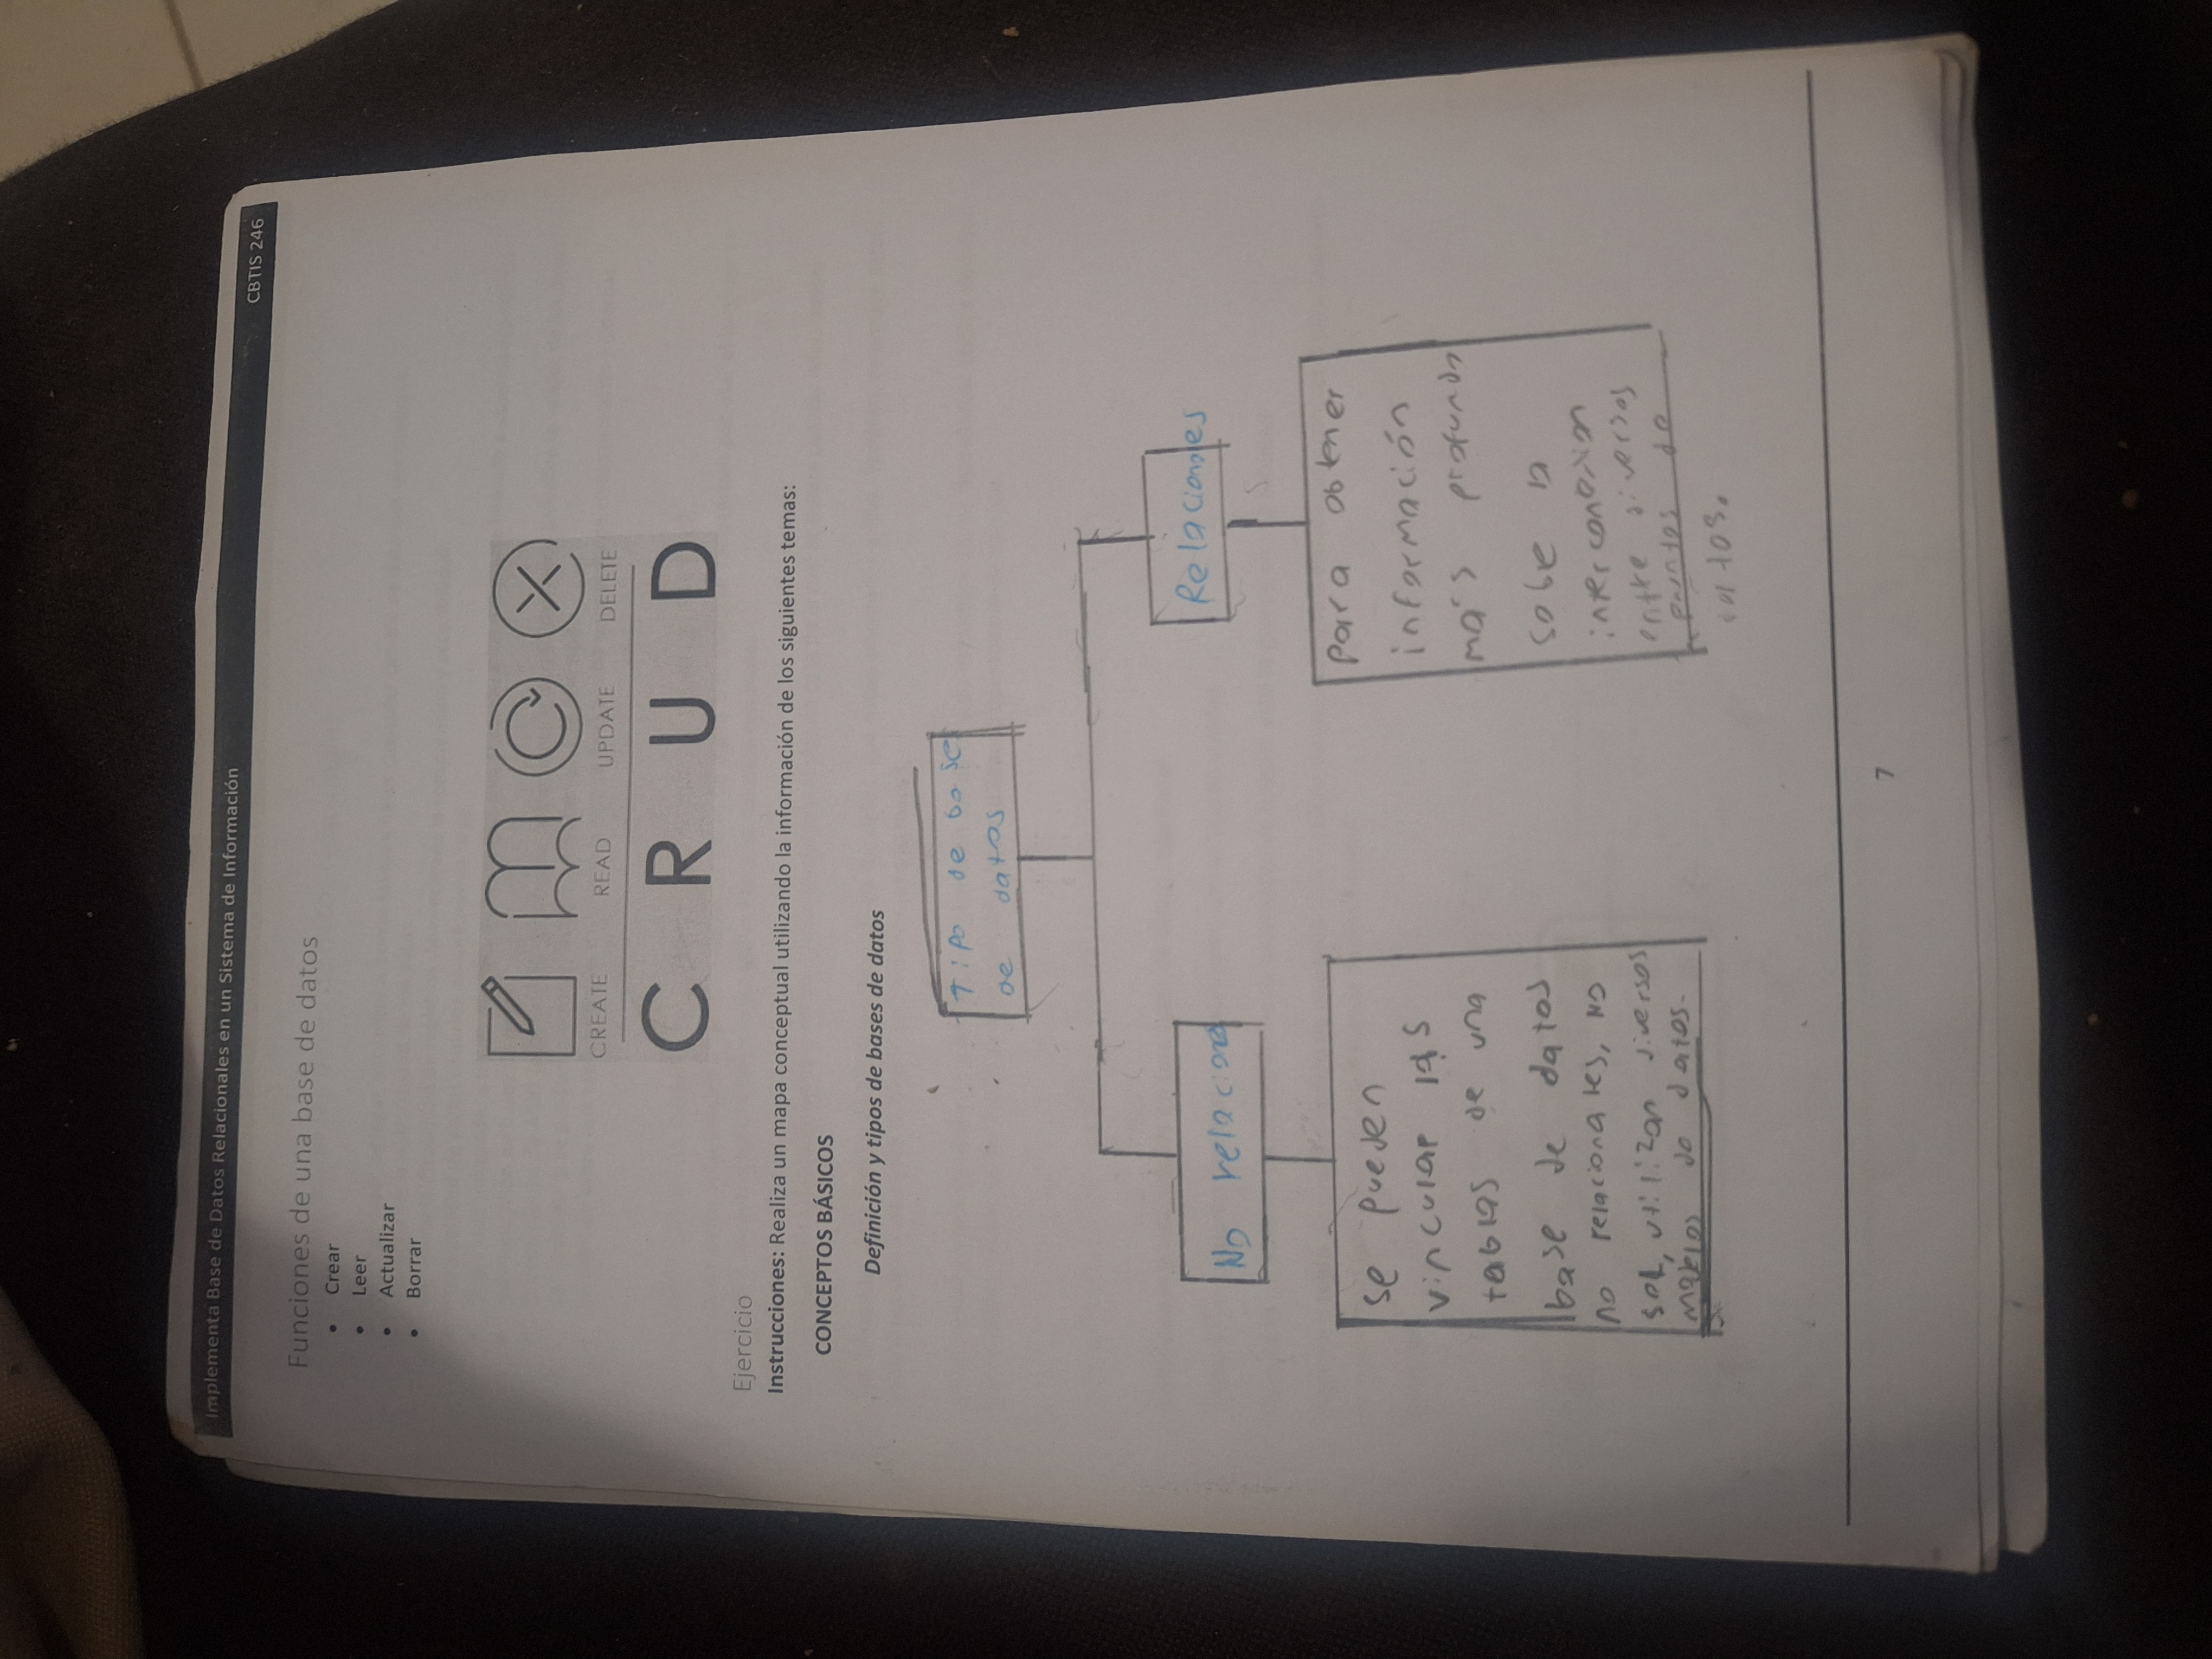 Implementa Base de Datos Relacionales en un Sistema de Información
CBTIS 246
Funciones de una base de datos
• Crear
• Leer
• Actualizar
• Borrar
CREATE READ UPDATE DELETE
C R U D
Ejercicio
Instrucciones: Realiza un mapa conceptual utilizando la información de los siguientes temas:
CONCEPTOS BÁSICOS
Definición y tipos de bases de datos
Tipo de base
de datos
No relaciona
Relacionales
se pueden
vincular las
tablas de una
base de datos
no relacionales, no
sql, utilizan diversos
modelos de datos.
para obtener
información
más profunda
sobe la
interconexion
entre diversos
puntos de
datos.
7